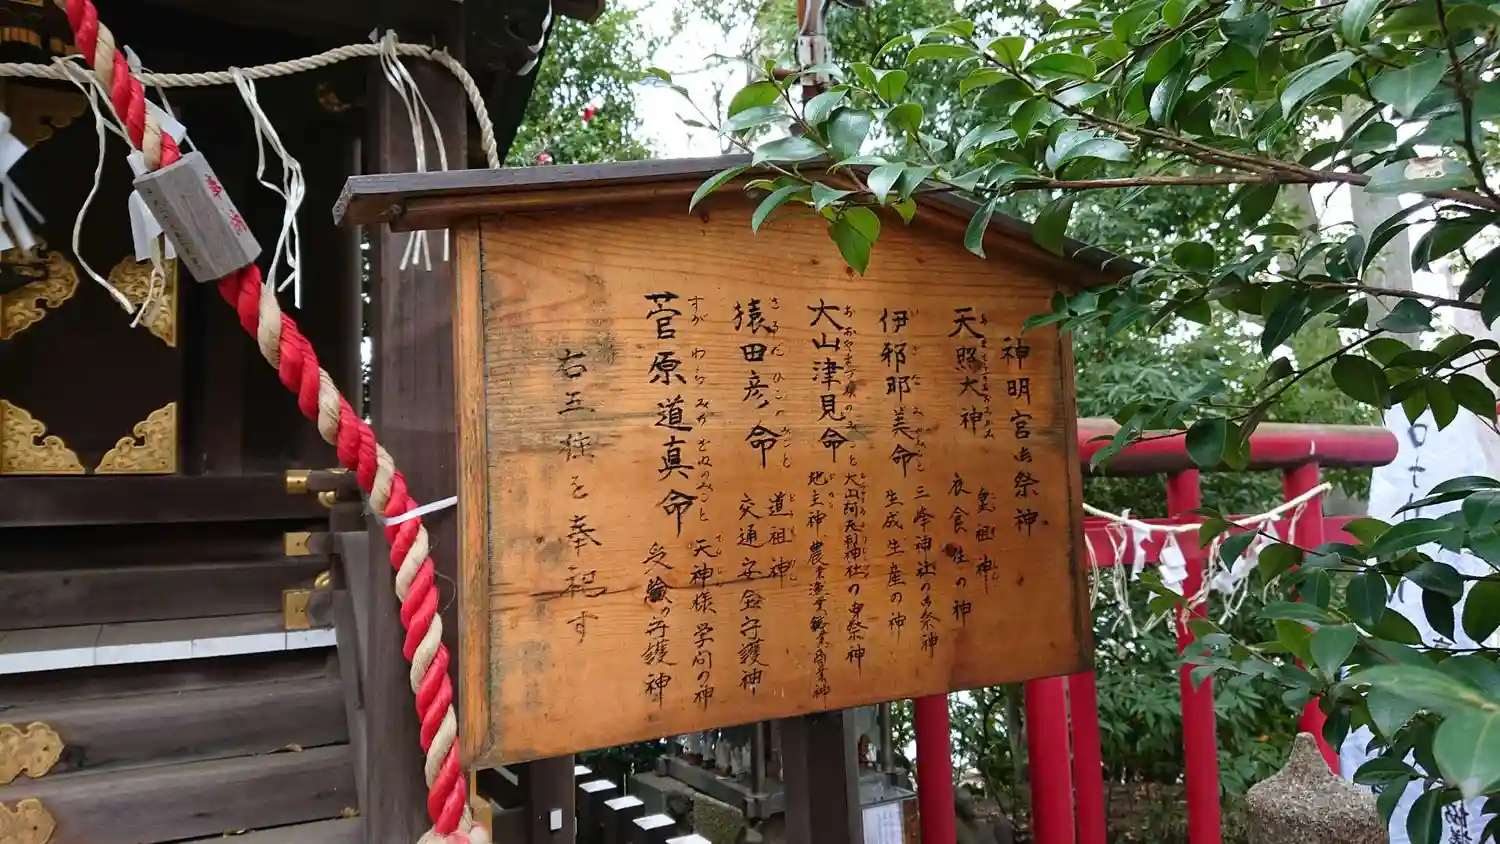 神明宮御祭神
天照大神
皇祖神
衣食住の神
伊邪那美命
三峰神社の御祭神
生成生産の神
大山津見命
大山阿夫利神社の御祭神
地主神 農業漁業鉱業商業神
猿田彦命
さるたひこのみこと
道祖神
交通安全守護神
菅原道真命
すがわらみちざねのみこと
天神様学問の神
受験の守護神
右五柱を奉祀す